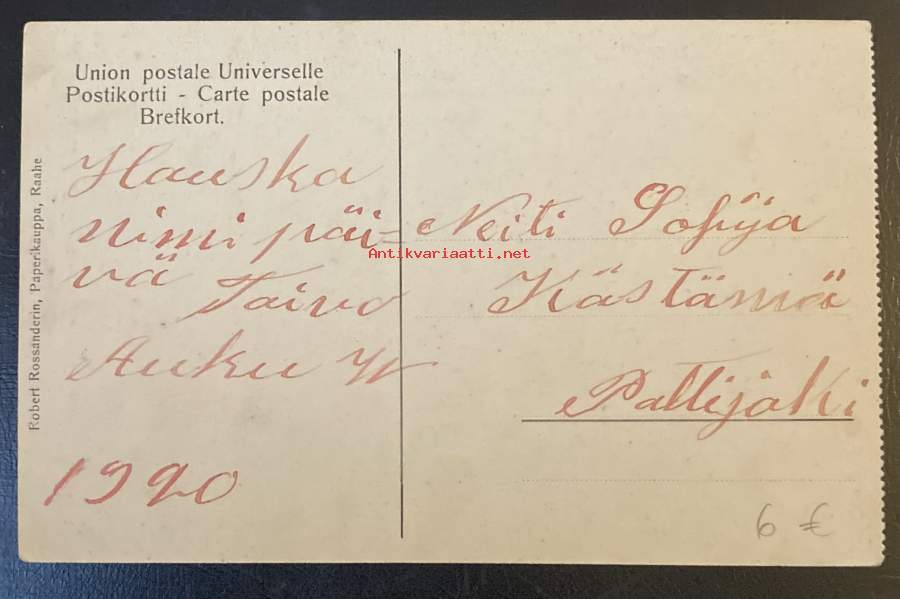 Union postale Universelle
Postikortti - Carte postale
Brefkort.
Robert Rossanderin, Paperikauppa, Raahe
Hauska
nimi päi=
vä Toivo
Auku W
1920
Neiti Sofija
Kästämä
Pattijoki
Antikvariaatti.net
6 €